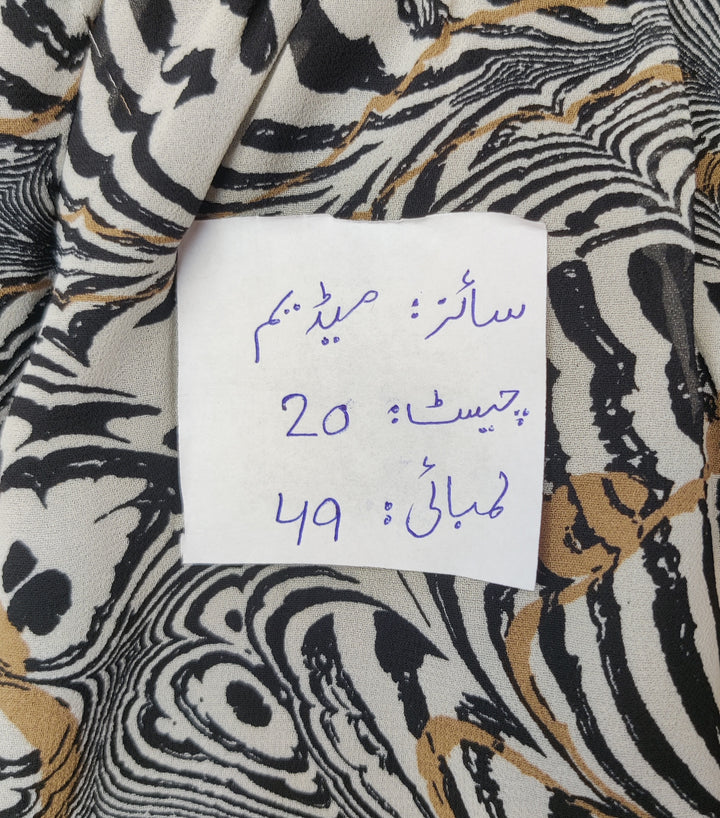 سائز: میڈیم
چیسٹ: 20
لمبائی: 49